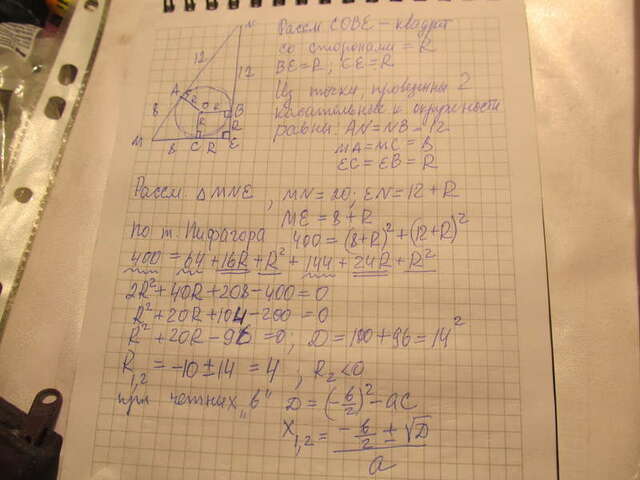 Рассм COBE - квадрат
со сторонами = R
BE = R; CE = R
Из точки проведенны 2
касательные к окружности
равны. AN = NB = 12
MA = MC = 8
EC = EB = R
N
12
12
A
8
R
O
R
B
R
R
M
8
C
R
E
Рассм. △MNE, MN = 20; EN = 12 + R
ME = 8 + R
По т. Пифагора 400 = (8+R)² + (12+R)²
400 = 64 + 16R + R² + 144 + 24R + R²
2R² + 40R + 208 - 400 = 0
R² + 20R + 104 - 200 = 0
R² + 20R - 96 = 0; D = 100 + 96 = 14²
R₁,₂ = -10 ± 14 = 4; R₂ < 0
при четных "b" D = (-b/2)² - ac
X₁,₂ = (-b/2 ± √D)/a